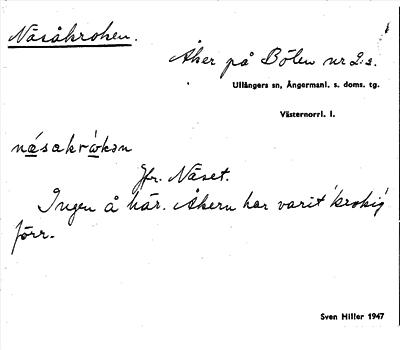 Näsåkroken.
Åker på Bölen nr 2:2.
Ullångers sn, Ångermanl. s. doms. tg.
Västernorrl. l.
näsakrókən
Jfr. Näset.
Ingen å här. Åkern har varit 'krokig'
förr.
Sven Hiller 1947